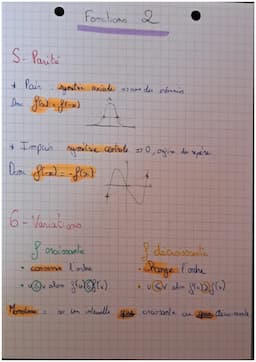 Fonctions 2
5 - Parité
* Pair : symétrie axiale => axe des
Donc f(x) = f(-x)
* Impair : symétrie centrale => O, origine du repère
Donc f(-x) = -f(x)
6 - Variations
f croissante f décroissante
• conserve l'ordre • change l'ordre
• u ≤ v alors f(u) ≤ f(v) • u ≤ v alors f(u) ≥ f(v)
Monotone : sur un intervalle que croissante ou que décroissante